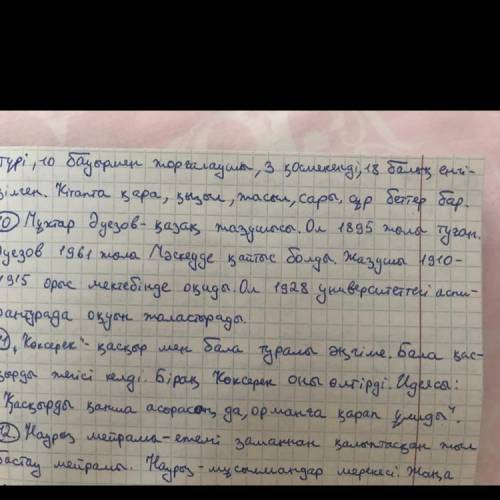 түрі, 10 бауырмен жорғалаушы, 3 қосмекенді, 18 балық енгі-
зілген. Кітапта қара, қызыл, жасыл, сары, сұр беттер бар.
10 Мұхтар Әуезов- қазақ жазушысы. Ол 1895 жылы туған.
Әуезов 1961 жылы Мәскеуде қайтыс болды. Жазушы 1910-
1915 орыс мектебінде оқиды. Ол 1928 университеттегі аспи-
рантурада оқуын жалғастырады.
11 "Көксерек"- қасқыр мен бала туралы әңгіме. Бала қас-
қырды жегісі келді. Бірақ Көксерек оны өлтірді. Идеясы:
"Қасқырды қанша асырасаң да, орманға қарап ұлиды".
12 Наурыз мейрамы- ежелгі заманнан қалыптасқан жыл
бастау мейрамы. Наурыз- мұсылмандар мерекесі. Жаңа